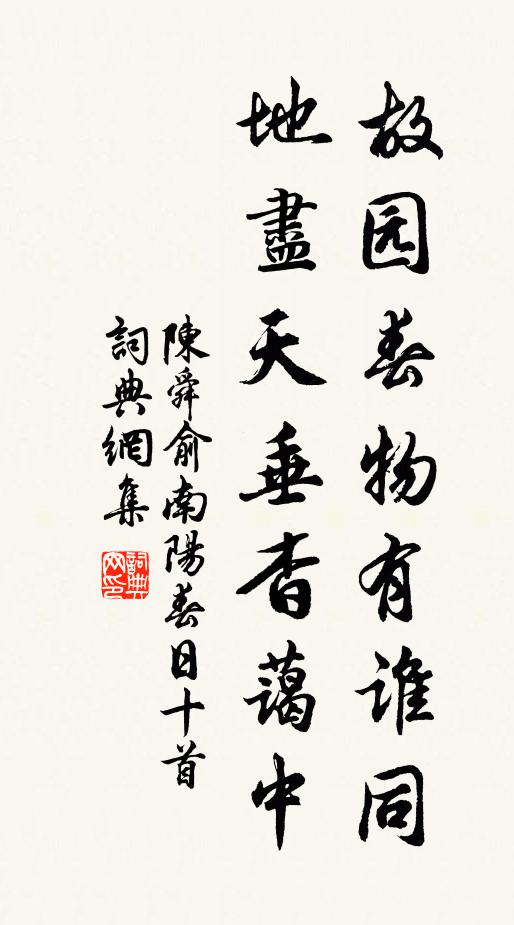 故园春物有谁同
地盡天垂杳藹中
陳舜俞南陽春日十首
詞典網集
詞典網印